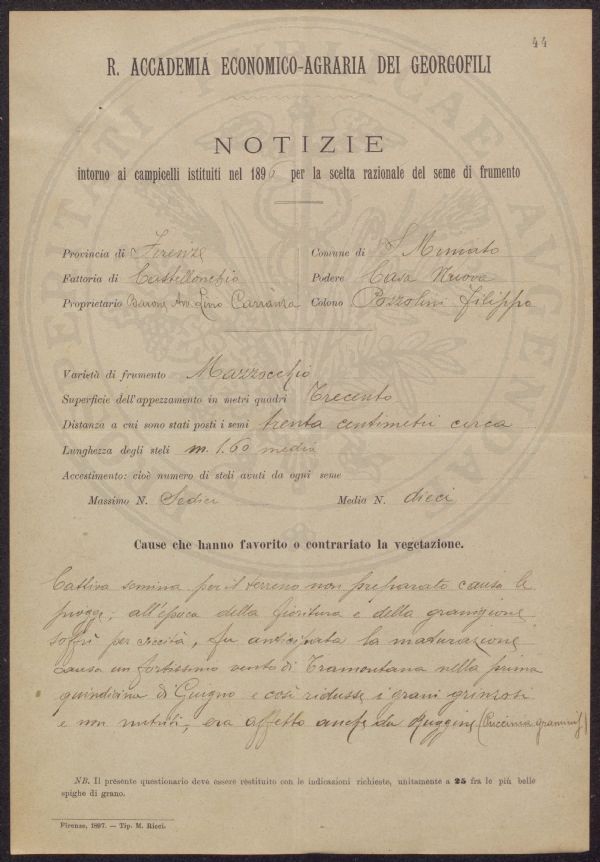 44
R. ACCADEMIA ECONOMICO-AGRARIA DEI GEORGOFILI
NOTIZIE
intorno ai campicelli istituiti nel 1896 per la scelta razionale del seme di frumento
Provincia di Firenze Comune di S. Miniato
Fattoria di Castellonchio Podere Casa Nuova
Proprietario Barone Avv. Lino Carranza Colono Pozzolini Filippo
Varietà di frumento Mazzocchio
Superficie dell'appezzamento in metri quadri Trecento
Distanza a cui sono stati posti i semi trenta centimetri circa
Lunghezza degli steli m. 1.60 media
Accestimento: cioè numero di steli avuti da ogni seme
Massimo N. Sedici Media N. dieci
Cause che hanno favorito o contrariato la vegetazione.
Cattiva semina per il terreno non preparato causa le
piogge; all'epoca della fioritura e della granigione
soffrì per siccità, fu anticipata la maturazione
causa un fortissimo vento di Tramontana nella prima
quindicina di Giugno e così ridusse i grani grinzosi
e non nutriti, era affetto anche da Ruggine (Puccinia graminis)
NB. Il presente questionario deve essere restituito con le indicazioni richieste, unitamente a 25 fra le più belle
spighe di grano.
Firenze, 1897. — Tip. M. Ricci.